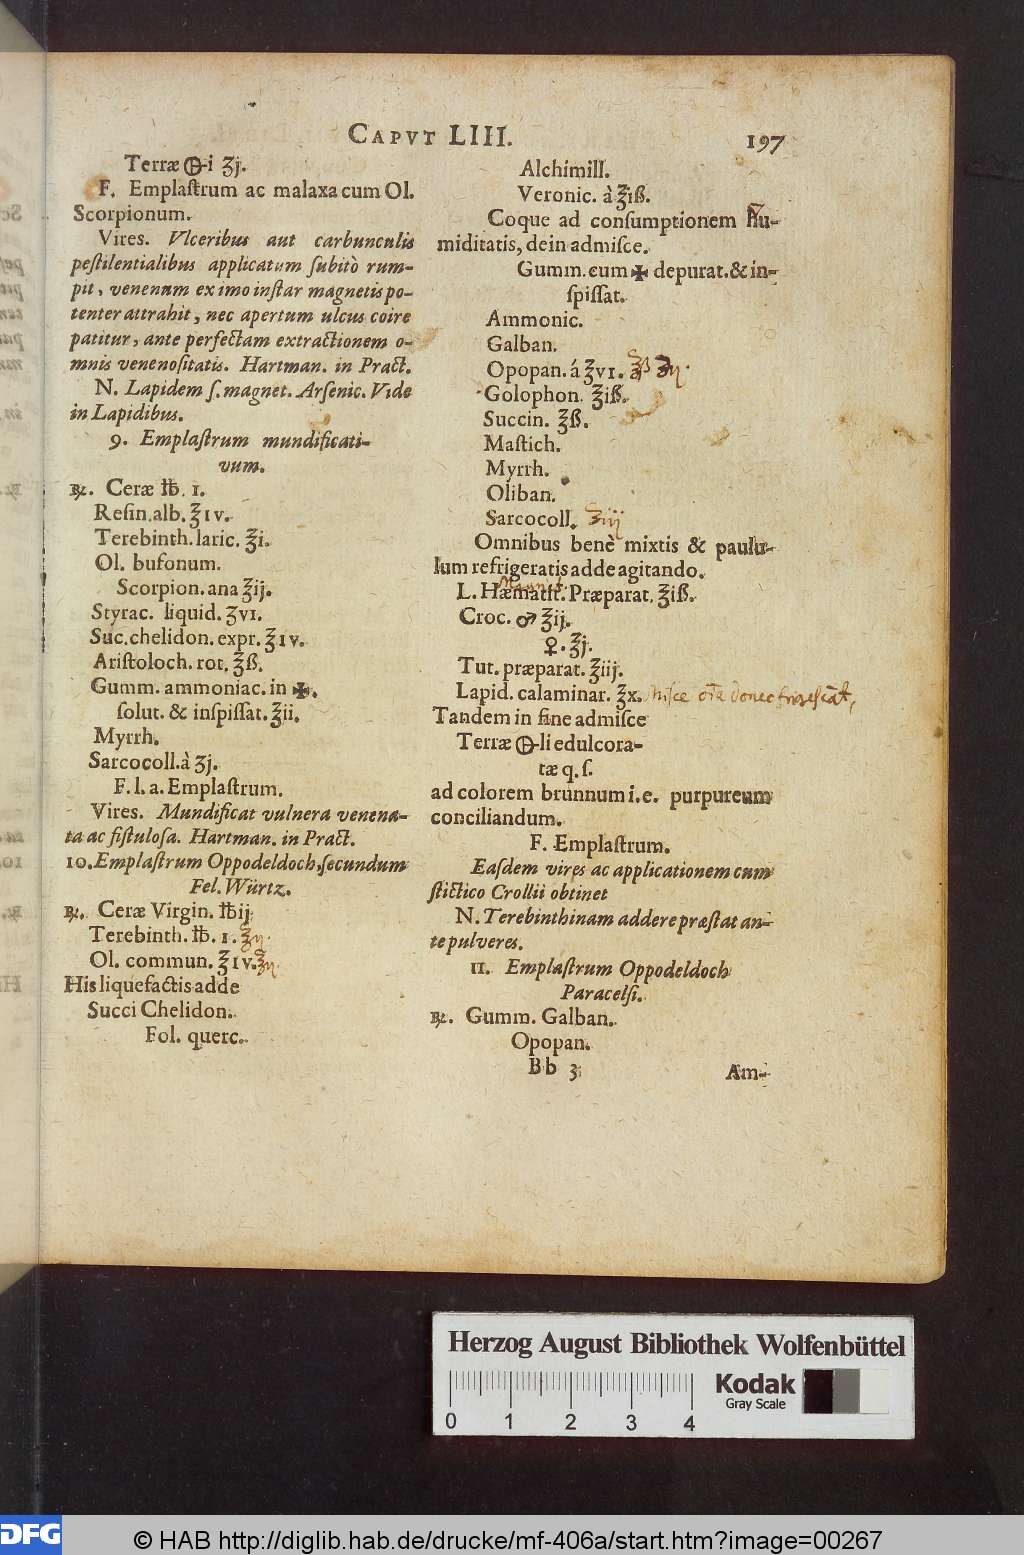 CAPVT LIII. 197
Terræ 🜨-i ʒj.
F. Emplaſtrum ac malaxa cum Ol.
Scorpionum.
Vires. Vlceribus aut carbunculis
peſtilentialibus applicatum ſubitò rum-
pit, venenum ex imo inſtar magnetis po-
tenter attrahit, nec apertum ulcus coire
patitur, ante perfectam extractionem o-
mnis venenoſitatis. Hartman. in Pract.
N. Lapidem ſ. magnet. Arſenic. Vide
in Lapidibus.
9. Emplaſtrum mundificati-
vum.
℞. Ceræ ℔. 1.
Reſin. alb. ℥ıv.
Terebinth. laric. ℥i.
Ol. bufonum.
Scorpion. ana ℥ij.
Styrac. liquid. ʒvı.
Suc. chelidon. expr. ℥ıv.
Ariſtoloch. rot. ℥ß.
Gumm. ammoniac. in ✠.
ſolut. & inſpiſſat. ℥ii.
Myrrh.
Sarcocoll. à ʒj.
F. l. a. Emplaſtrum.
Vires. Mundificat vulnera venena-
ta ac fiſtuloſa. Hartman. in Pract.
10. Emplaſtrum Oppodeldoch, ſecundum
Fel. Würtz.
℞. Ceræ Virgin. ℔ij
Terebinth. ℔. 1. ℥ij.
Ol. commun. ℥ıv. ℥ij.
His liquefactis adde
Succi Chelidon.
Fol. querc.
Alchimill.
Veronic. à ℥iß.
Coque ad conſumptionem hu-
miditatis, dein admiſce.
Gumm. cum ✠ depurat. & in-
ſpiſſat.
Ammonic.
Galban.
Opopan. á ʒvı. ℥ß
Golophon. ℥iß.
Succin. ℥ß.
Maſtich.
Myrrh.
Oliban.
Sarcocoll. ℥iij
Omnibus benè mixtis & paulu-
lum refrigeratis adde agitando.
Magnet.
L. Hæmatit. Præparat. ℥iß.
Croc. ♂ ℥ij.
♀. ℥j.
Tut. præparat. ℥iij.
Lapid. calaminar. ℥x. miſce oīa donec frigeſcāt,
Tandem in fine admiſce
Terræ 🜨-li edulcora-
tæ q. ſ.
ad colorem brunnum i. e. purpureum
conciliandum.
F. Emplaſtrum.
Eaſdem vires ac applicationem cum
ſtictico Crollii obtinet
N. Terebinthinam addere præſtat an-
te pulveres.
11. Emplaſtrum Oppodeldoch
Paracelſi.
℞. Gumm. Galban.
Opopan.
Bb 3 Am-
Herzog August Bibliothek Wolfenbüttel
Kodak
Gray Scale
0 1 2 3 4
DFG © HAB http://diglib.hab.de/drucke/mf-406a/start.htm?image=00267